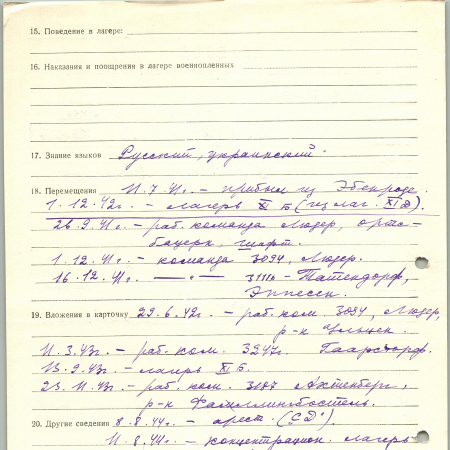 15. Поведение в лагере:
16. Наказания и поощрения в лагере военнопленных
17. Знание языков Русский, украинский.
18. Перемещения 11.7.41г. – прибыл из Эбенроде.
1.12.42г. – лагерь XI Б (из лаг. XI Д).
26.9.41г. – раб. команда Людер,
1.12.41г. – команда 3094, Людер.
16.12.41г. – –"– – Татендорф,
Эппесен.
19. Вложения в карточку 29.6.42г. – раб. ком. 3094, Людер,
р-к Ульцен.
11.3.43г. – раб. ком. 3247. Гаарсторф.
13.9.43г. – лагерь XI Б.
23.11.43г. – раб. ком. 3107 Ахтенберг,
р-к Фаллингбостель.
20. Другие сведения 8.8.44г. – арест. (СД).
11.8.44г. – концентрацион. лагерь